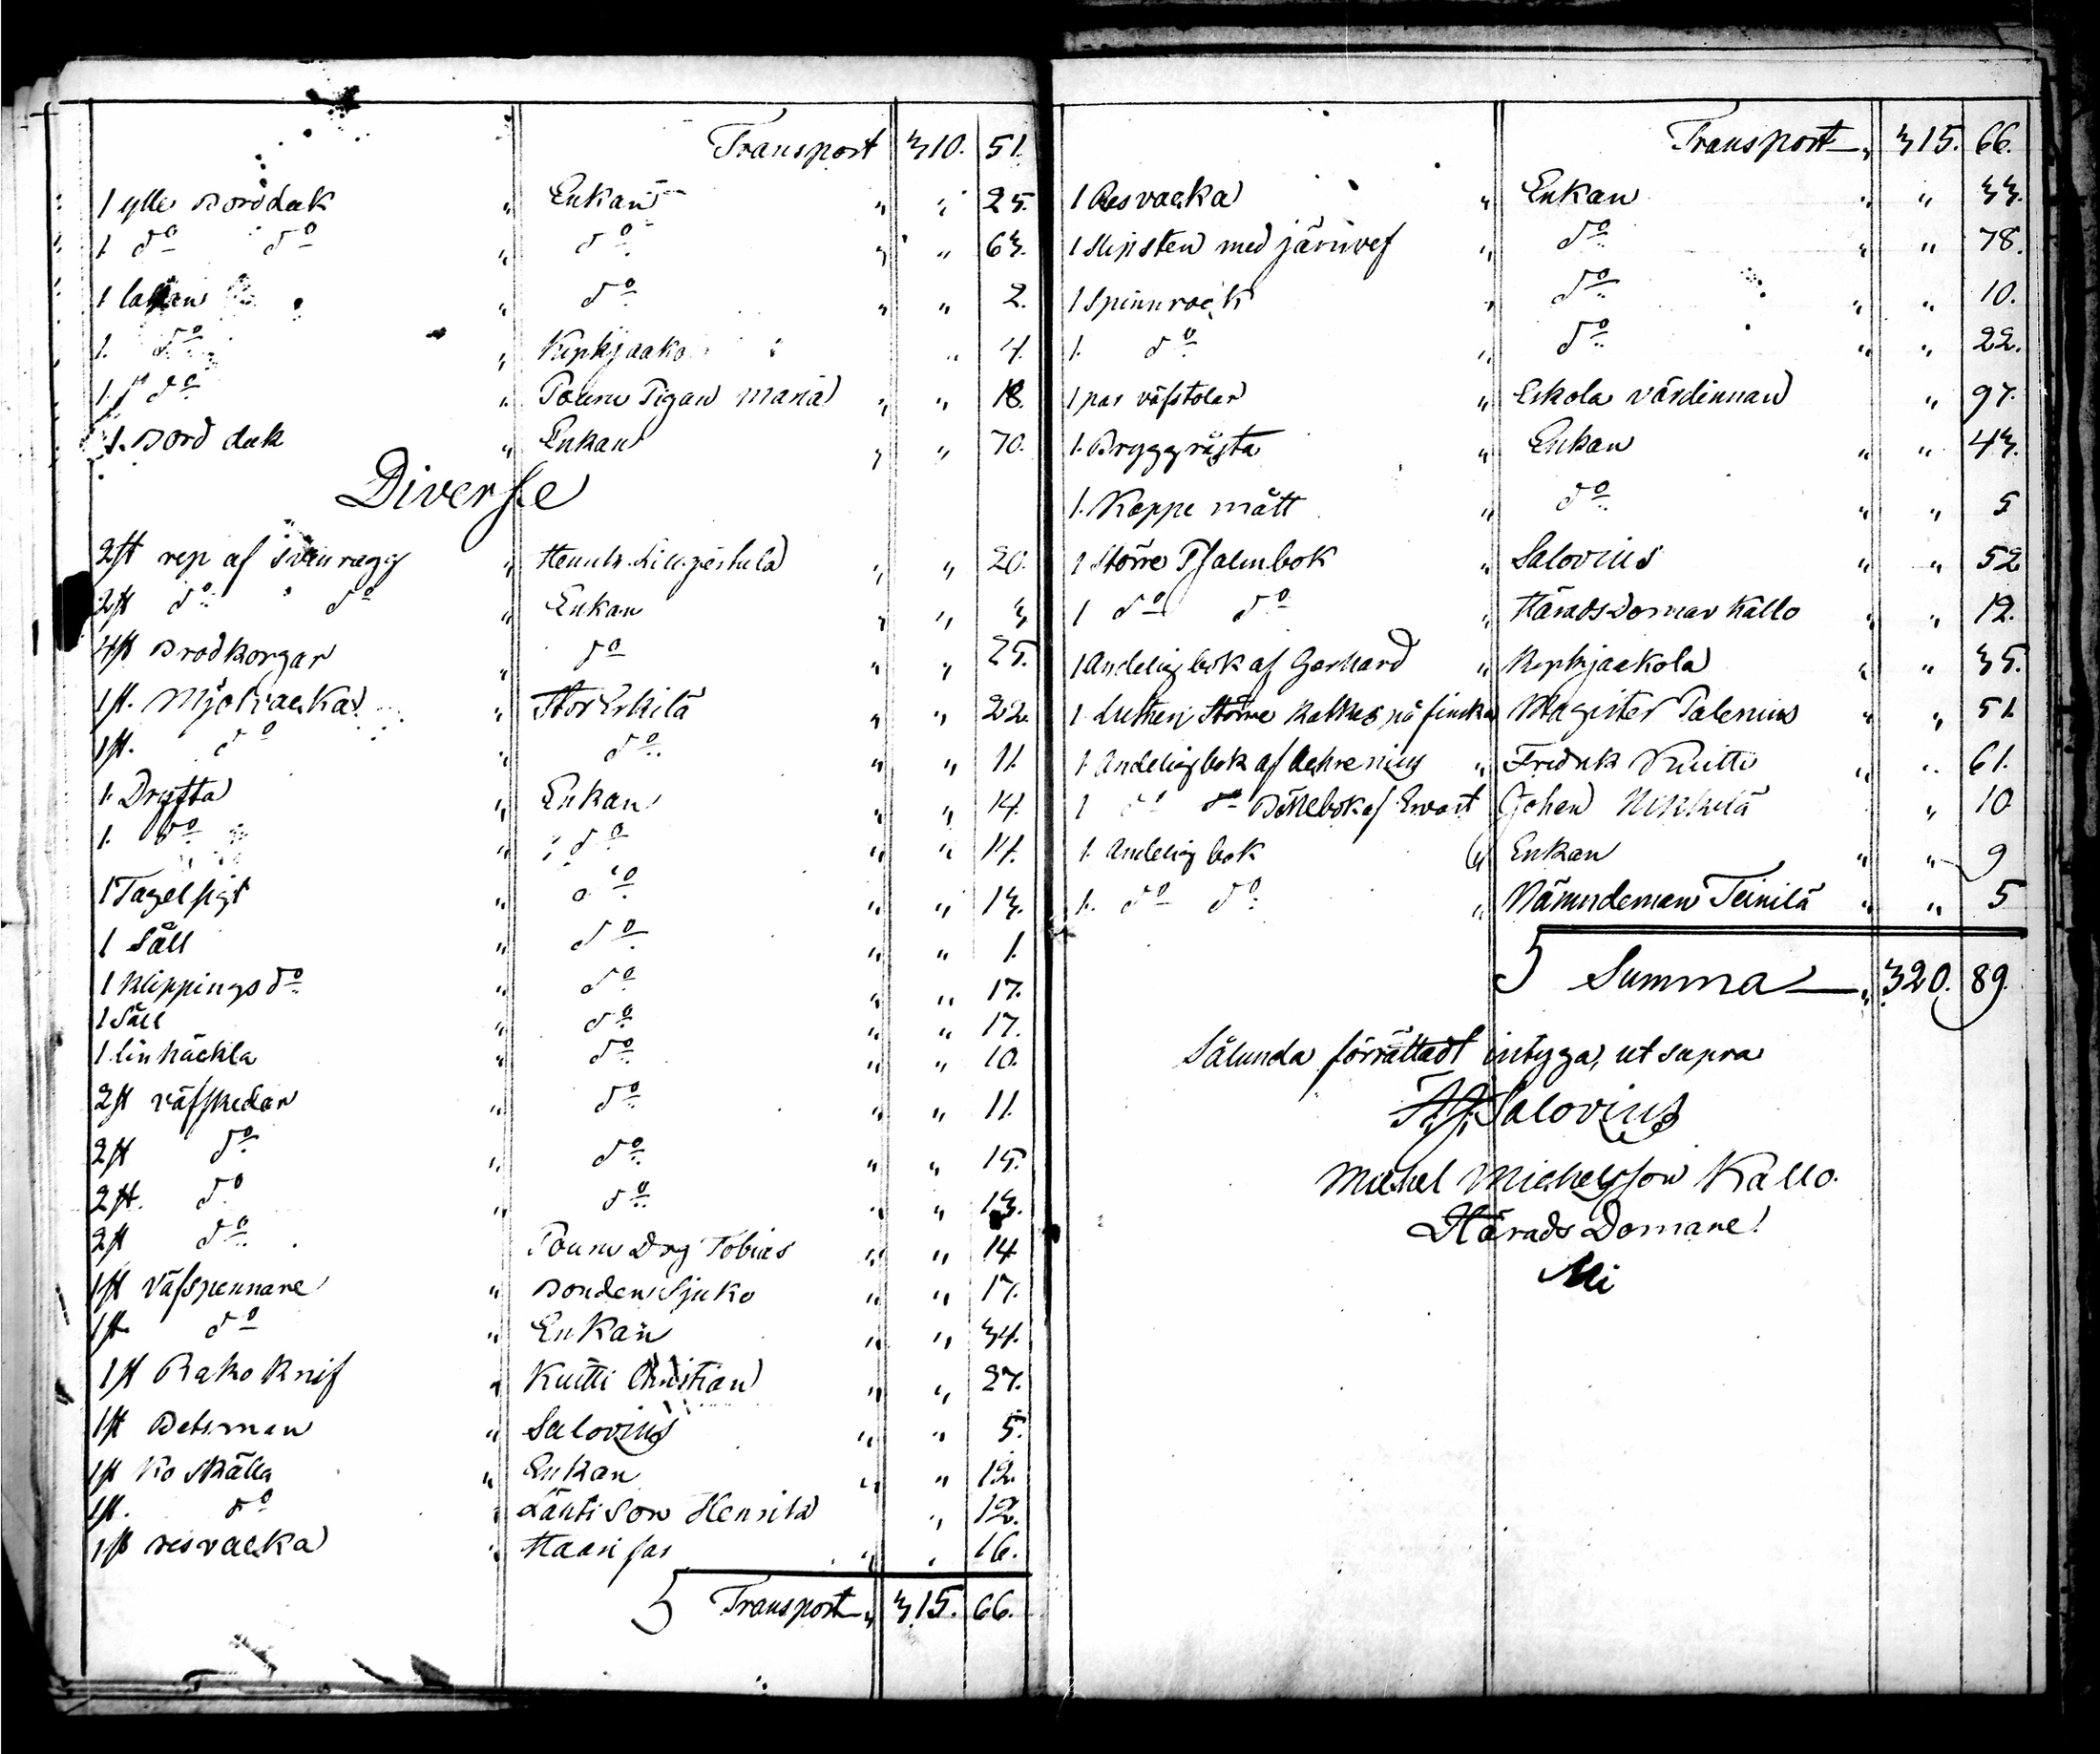 Transport 310. 51.
1 ylle Bordduk " Enkan " " 25.
1. do do " do " " 63.
1 lakan " do " " 2.
1. do " Kepkjaako " 4.
1. do " Pouru Pigan Maria " " 18.
1. Bord duk " Enkan " " 70.
Diverse
2st rep af Svinragg " Henrik " " 20.
2st do do " Enkan " " 3
4st Brodkorgar do " " 25.
1st. Mjölvacka " Stor Erkilä " " 22.
1st. do " do " " 11.
1. Dryfta " Enkan " " 14.
1. do " do " " 14.
1 Tagelsigt " do " " 13.
1 Såll " do " " 1.
1 Klippings do " do " " 17.
1 Såll " do " " 17.
1 linhäckla " do " " 10.
2st väfskedar " do " " 11.
2st do " do " " 15.
2st. do " do " " 13.
2st do Pouru Drg Tobias " " 14
1st Väfspennare " Bonden Sjuko " " 17.
1st do " Enkan " " 34.
1st Rakoknif " Kuitti Christian " " 27.
1st Betsman " Salovius " " 5.
1st Koskälla " Enkan " " 12.
1st. do " Läntison Henrik " 12.
1st resvacka " Haari far " " 16.
Transport " 315. 66.
Transport " 315. 66.
1 Resvacka " Enkan " " 33.
1 Slipsten med järnvef " do " " 78.
1 Spinnrock " do " " 10.
1. do " do " " 22.
1 par väfstolar " Erkola värdinnan " 97.
1. Bryggrosta " Enkan " " 43.
1. Kappe mått " do " " 5
1 Större Psalmbok " Salovius " " 52
1 do do " HäradsDomar Kallo " " 12.
1 Andelig bok af Gerhard " Kepkjaakola " " 35.
1 Lutheri Större Katkes på finska Magister Palenius " " 51.
1. Andelig bok af Achrenius " Fredrik Kuitti " " 61.
1 do do Bönebok af Johan " 10
1. Andelig bok " Enkan " " 9
1. do do " Nämndeman Teinilä " " 5
Summa " 320. 89.
Sålunda förrättadt intyga, ut supra
Salovius
Michel Michelsson Kallo.
Härads Domare.